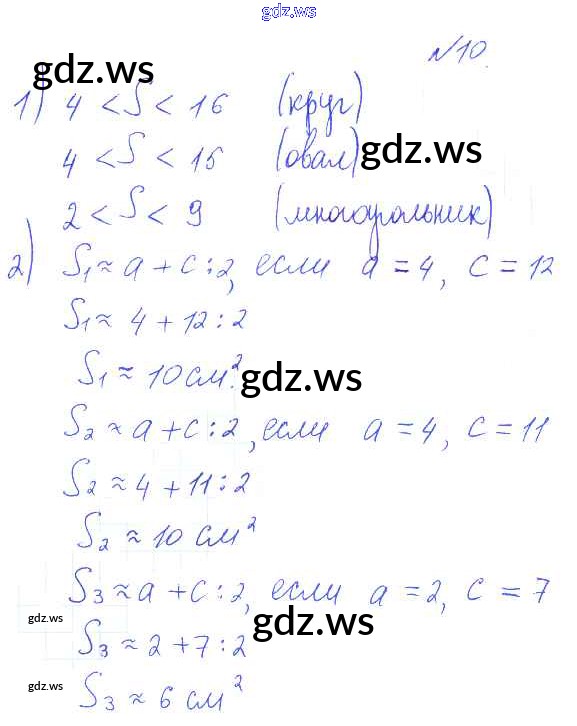 gdz.ws
№10.
gdz.ws
1) 4 < S < 16 (круг)
4 < S < 15 (овал) gdz.ws
2 < S < 9 (многоугольник)
2) S₁ ≈ a + c : 2, если a = 4, c = 12
S₁ ≈ 4 + 12 : 2
S₁ ≈ 10 см².
gdz.ws
S₂ ≈ a + c : 2, если a = 4, c = 11
S₂ ≈ 4 + 11 : 2
S₂ ≈ 10 см²
S₃ ≈ a + c : 2, если a = 2, c = 7
gdz.ws gdz.ws
S₃ ≈ 2 + 7 : 2
gdz.ws
S₃ ≈ 6 см²